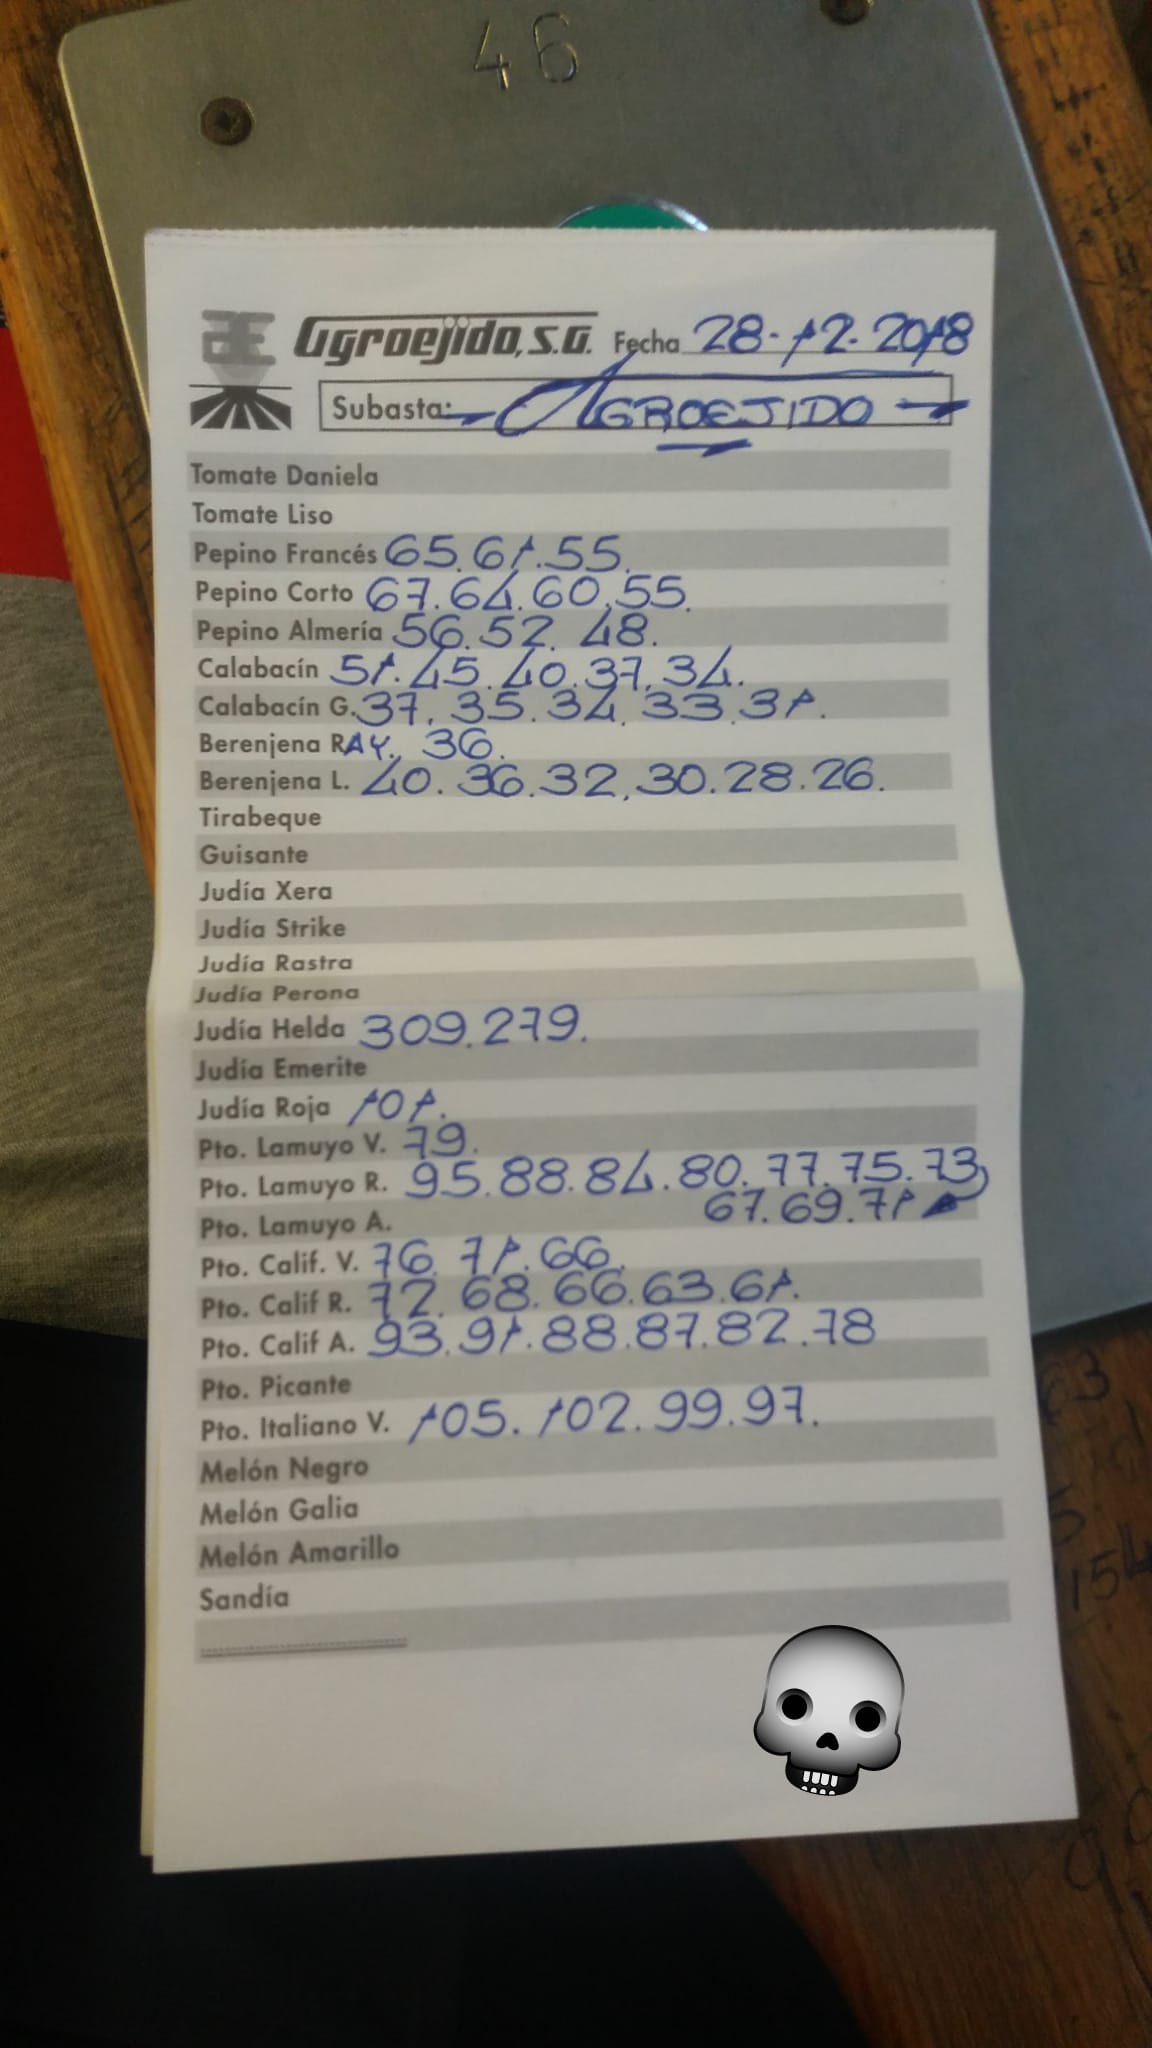 46
AE Agroejido, S.A. Fecha 28-12-2018
Subasta: AGROEJIDO
Tomate Daniela
Tomate Liso
Pepino Francés 65.61.55.
Pepino Corto 67.64.60.55.
Pepino Almería 56.52.48.
Calabacín 51.45.40.37.34.
Calabacín G. 37.35.34.33.31.
Berenjena RAY. 36.
Berenjena L. 40.36.32.30.28.26.
Tirabeque
Guisante
Judía Xera
Judía Strike
Judía Rastra
Judía Perona
Judía Helda 309.279.
Judía Emerite
Judía Roja 101.
Pto. Lamuyo V. 79.
Pto. Lamuyo R. 95.88.84.80.77.75.73
67.69.71
Pto. Lamuyo A.
Pto. Calif. V. 76.71.66.
Pto. Calif R. 72.68.66.63.61.
Pto. Calif A. 93.91.88.87.82.78
Pto. Picante
Pto. Italiano V. 105.102.99.97.
Melón Negro
Melón Galia
Melón Amarillo
Sandía